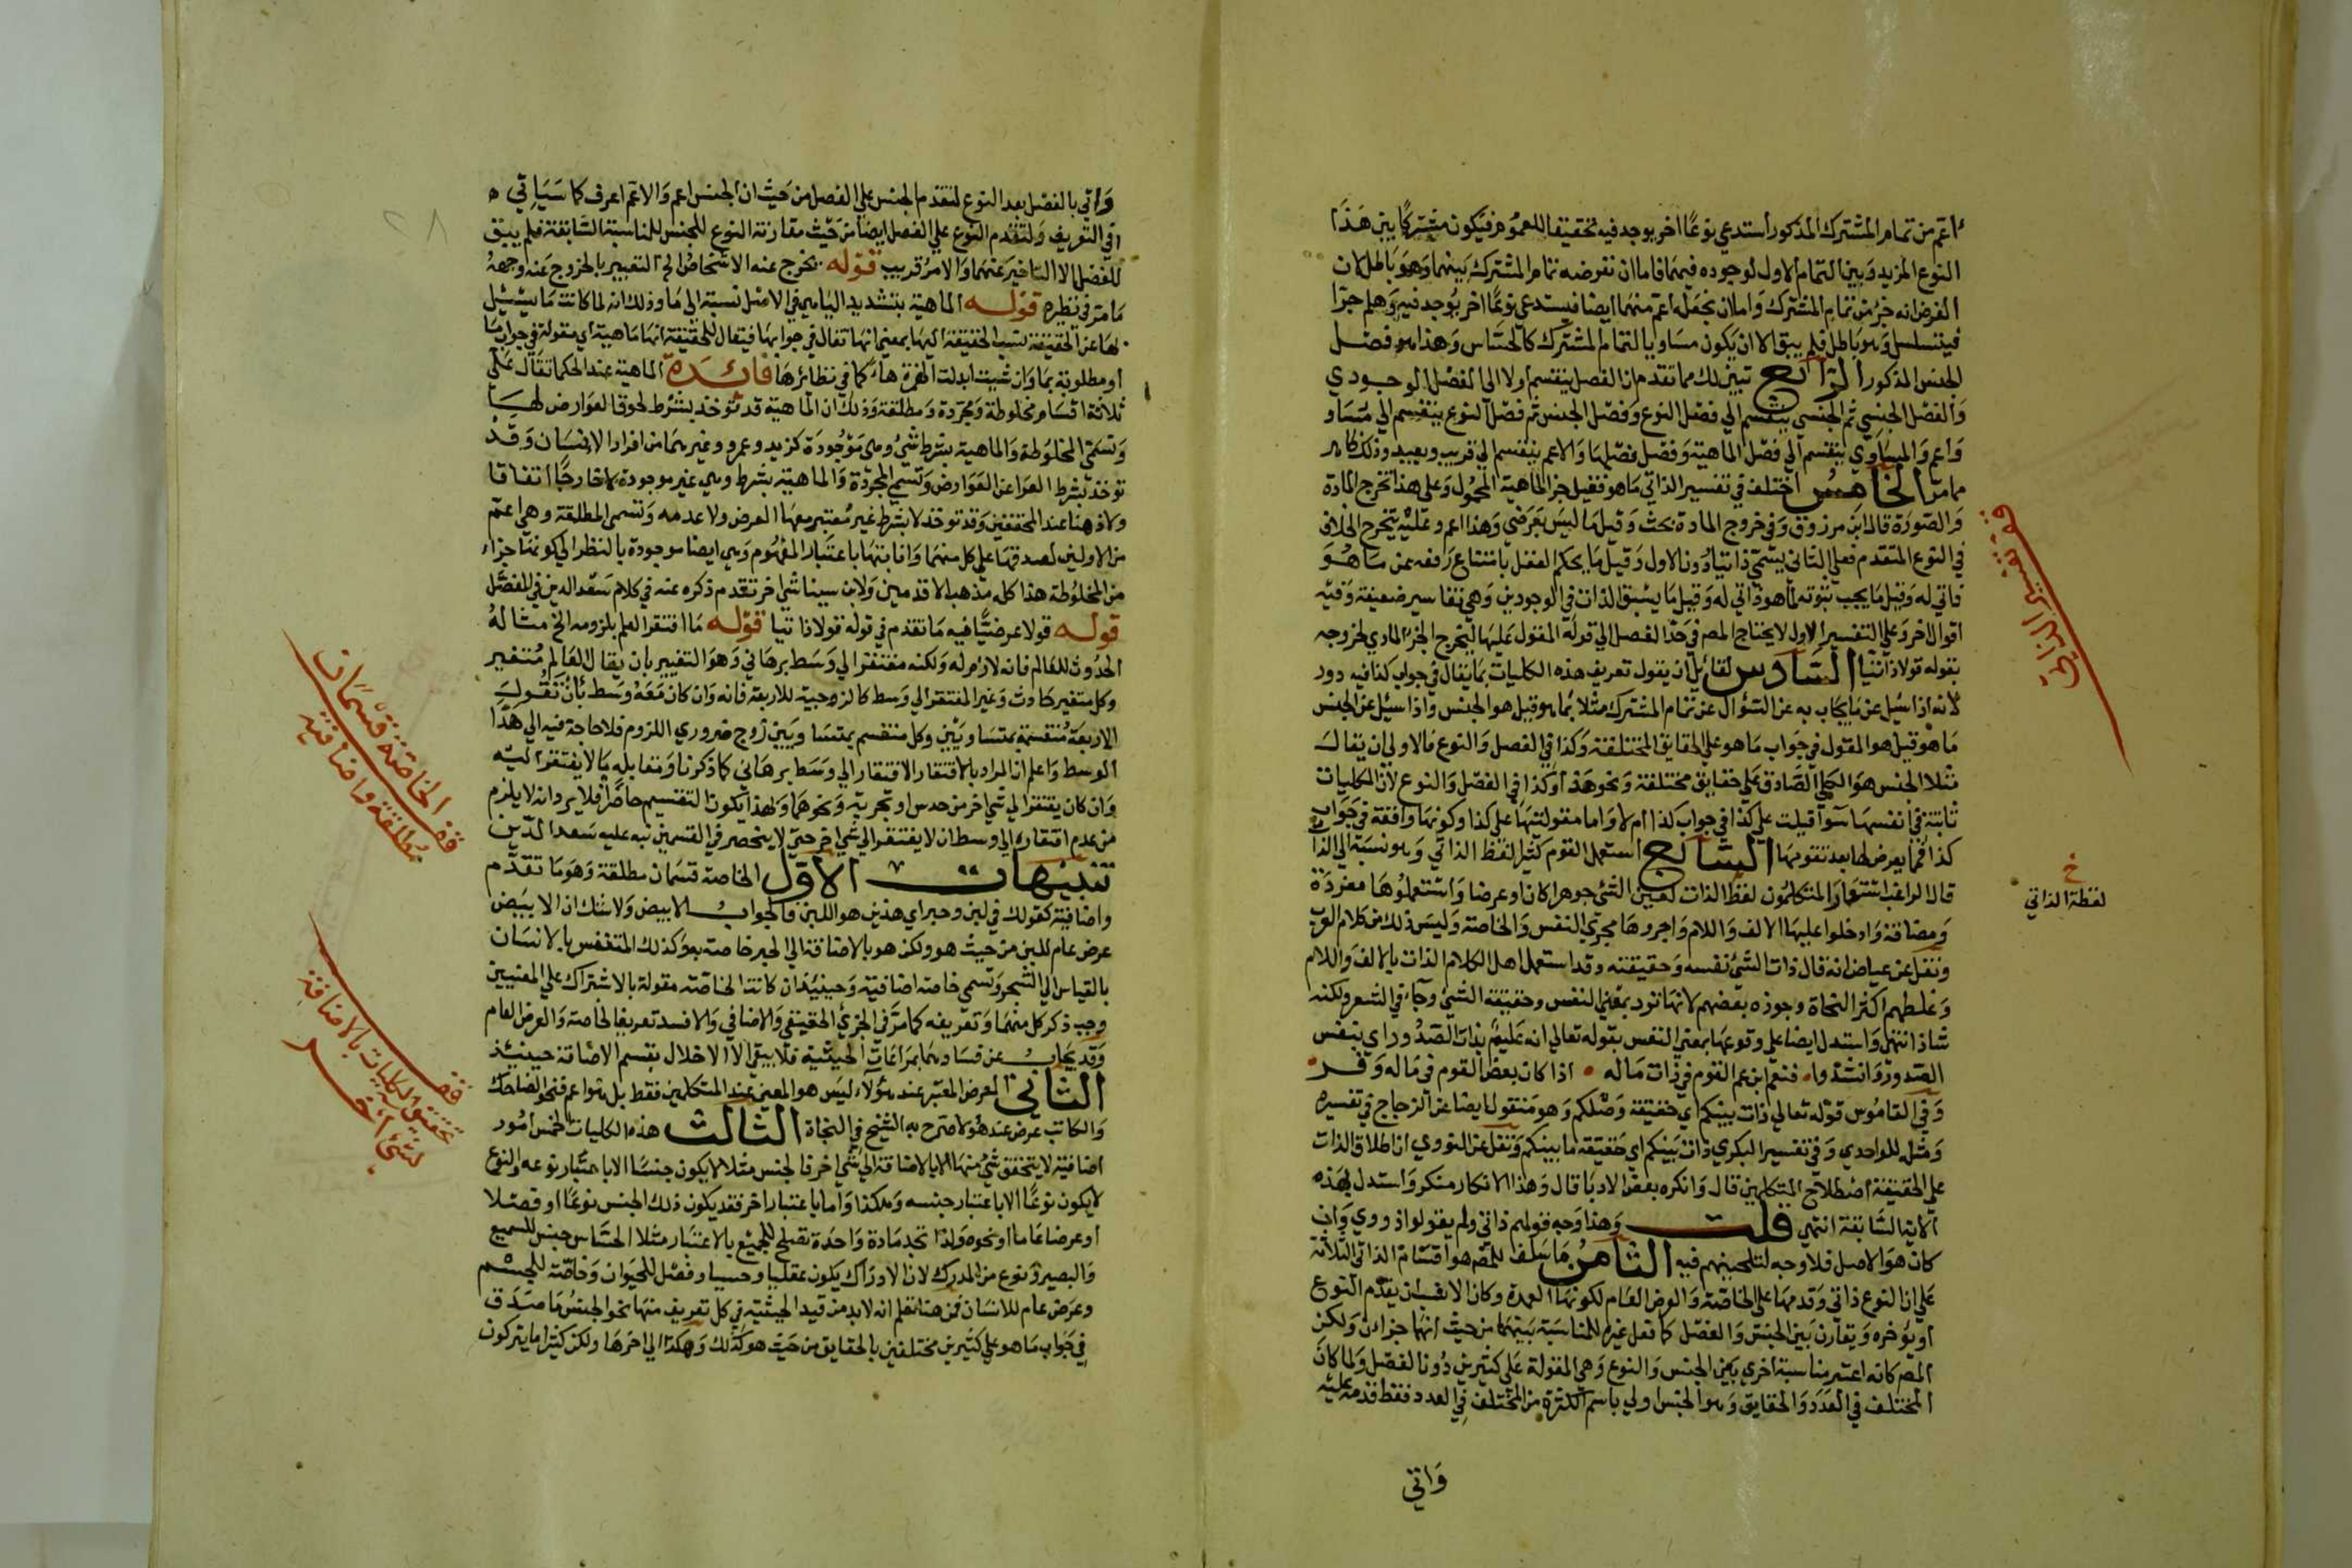 اعم من تمام المشترك المذكور استدعي نوعًا اخر يوجد فيه تحقيقا للعموم فيكون مشتركًا بين هذا
النوع المزيد وبين التمام الاول لوجوده فيهما فاما ان نفرضه تمام المشترك بينهما وهو باطل لان
الفرض انه جزء من تمام المشترك واما ان نجعله اعم منهما ايضا فيستدعي نوعًا اخر يوجد فيه وهلم جرا
فيتسلسل وهو باطل فلم يبق الا ان يكون مساويا لتمام المشترك كالحساس وهذا هو فصل
الجنس المذكور الرابع تبين لك مما تقدم ان الفصل ينقسم اولا الى الفصل الوجودي
والفصل الجنسي ثم الجنسي ينقسم الي فصل النوع وفصل الجنس ثم فصل النوع ينقسم الي مساو
واعم والمساوي ينقسم الي فصل الماهية وفصل فصلها والاعم ينقسم الي قريب وبعيد وذلك كله
مما مر الخامس اختلف في تفسير الذاتي ما هو فقيل جزء الماهية المحمول وعلى هذا تخرج المادة
والصورة قال ابن مرزوق وفي خروج المادة بحث وقيل ما ليس بعرضي وهذا اعم وعليه يتخرج الخلاف
في النوع المتقدم فعلي الثاني يسمي ذاتيا دون الاول وقيل ما يحكم العقل بامتناع رفعه عمن ما هو
ذاتي له وقيل ما يجب ثبوته لما هو ذاتي له وقيل ما يسبق الذات في الوجودين وهي تفاسير ضعيفة وفيه
اقوال اخر وعلي التفسير الاول لا يحتاج المص في حد الفصل الي قوله المقول عليها ليخرج الجزء المادي لخروجه
بقوله قولا ذاتيا السادس لقائل ان يقول تعريف هذه الكليات بما يقال في جواب كذا فيه دور
لانه اذا سئل عن ما يجاب به عن السؤال عن تمام المشترك مثلا بما هو قيل هو الجنس واذا سئل عن الجنس
ما هو قيل هو المقول في جواب ما هو علي الحقايق المختلفة وكذا في الفصل والنوع فالاولى ان يقال
مثلا الجنس هو الكلي الصادق علي حقايق مختلفة ونحو هذا وكذا في الفصل والنوع لان الكليات
ثابتة في انفسها سوآ قيلت علي كذا في جواب كذا ام لا واما مقوليتها علي كذا وكونها واقعة في جواب
كذا فمما يعرض لها بعد تقومها السابع استعمل القوم كثيرا لفظ الذاتي وهو نسبة الي الذات
قال الراغب استعار المتكلمون لفظ الذات لعين الشئ جوهرا كان او عرضا واستعملوها مفردة
ومضافة وادخلوا عليها الالف واللام واجروها مجري النفس والخاصة وليس ذلك من كلام العرب
ونقل عن عياض انه قال ذات الشئ نفسه وحقيقته وقد استعمل اهل الكلام الذات بالالف واللام
وغلطهم اكثر النحاة وجوزه بعضهم لانها ترد بمعني النفس وحقيقة الشئ وجاء في الشعر ولكنه
شاذ انتهى واستدل ايضا علي وقوعها بمعني النفس بقوله تعالي انه عليم بذات الصدور اي بنفس
الصدور وانشدوا فنعم ابن عم القوم في ذات ماله • اذا كان بعض القوم في ماله وفر •
وفي القاموس قوله تعالي ذات بينكم اي حقيقة وصلكم وهو منقول ايضا عن الزجاج في تفسيره
ومثله للواحدي وفي تفسير البكري ذات بينكم اي حقيقة ما بينكم ونقل عن النووي ان اطلاق الذات
علي الحقيقة اصطلاح المتكلمين قال وانكره بعض الادبا قال وهذا الانكار منكر واستدل بهذه
الاية السابقة انتهي قلت وهذا وجه قولهم ذاتي ولم يقولوا ذووي وان
كان هو الاصل فلا وجه لتلحينهم فيه الثامن ما سلف للمص هو اقسام الذاتي الثلاثة
علي ان النوع ذاتي وقدمها علي الخاصة والعرض العام لكونها العمدة وكان الانسب ان يقدم النوع
او يؤخره ويقارن بين الجنس والفصل كما فعل غيره للمناسبة بينهما من حيث انهما جزءان ولكن
المص كانه اعتبر مناسبة اخري بين الجنس والنوع وهي المقولة علي كثيرين دون الفصل ولما كان
المختلف في العدد والحقايق وهو الجنس اولي باسم الكثرة من المختلف في العدد فقط قدمه عليه
واتي
قف تفسير الذاتي
خ
لفظة الذاتي
واتي بالفصل بعد النوع لتقدم الجنس علي الفصل من حيث ان الجنس اعم والاعم اعرف كما سياتي ه
في التعريف ولتقدم النوع علي الفصل ايضا من حيث مقارنة النوع للجنس للمناسبة السابقة فلم يبق
للفصل الا التاخير عنهما والامر قريب قوله يخرج عنه الاشخاص الخ التعبير بالخروج عنه وجهه
ما مر في نظيره قوله الماهية بتشديد الياء هي في الاصل نسبة الي ما وذلك انه لما كانت ما يسئل
بها عن الحقيقة نسب الحقيقة اليها بمعني انها تقال في جوابها فيقال للحقيقة انها ماهية اي مقولة في جواب ما
او مطلوبة بما وان شئت ابدلت الهمزة هاء كما في نظائرها فائدة الماهية عند الحكما تقال علي
ثلاثة اقسام مخلوطة ومجردة ومطلقة وذلك ان الماهية قد توخذ بشرط لحوق العوارض لها
وتسمى المخلوطة والماهية بشرط شئ وهي موجودة كزيد وعمرو وغيرهما من افراد الانسان وقد
توخذ بشرط العرا عن العوارض وتسمي المجردة والماهية بشرط وهي غير موجودة لا خارجًا اتفاقا
ولا ذهنا عند المحققين وقد توخذ لا بشرط غير معتبر معها العرض ولا عدمه وتسمى المطلقة وهي اعم
من الاولين لصدقها علي كل منهما واثباتها باعتبار المفهوم وهي ايضا موجودة بالنظر الي كونها جزاء
من المخلوطة هذا كله مذهب الاقدمين ولابن سينا شئ اخر تقدم ذكره عنه في كلام سعد الدين في الفصل
قوله قولا عرضيًّا فيه ما تقدم في قوله قولا ذاتيا قوله ما افتقر العلم بلزومه الخ مثاله
الحدوث للعالم فانه لازم له ولكنه مفتقر الي وسط برهاني وهو التغيير بان يقال العالم متغير
وكل متغير حادث وغير المفتقر الي وسط كالزوجية للاربعة فانه وان كان معه وسط بان نقول
الاربعة منقسمة بمتساويين وكل منقسم بمتساويين زوج ضروري اللزوم فلا حاجة فيه الي هذا
الوسط واعلم ان المراد بالافتقار الافتقار الي وسط برهاني كما ذكرنا ومقابله ما لا يفتقر اليه
وان كان يفتقر الي شئ اخر من حدس او تجربة ونحوهما ولهذا يكون التقسيم حاصرًا فلا يرد انه لا يلزم
من عدم افتقاره الي وسط ان لا يفتقر الي شئ اخر حتى لا ينحصر في القسمين نبه عليه سعد الدين
تنبيهات الاول الخاصة قسمان مطلقة وهو ما تقدم
واضافية كقولك في لبن وحبر اي هذين هو اللبن فالجواب الابيض ولا شك ان الابيض
عرض عام للبن من حيث هو ولكن هو بالاضافة الي الحبر خاصة به وكذلك المتنفس بالانسان
بالقياس الي الشجر وتسمي خاصة اضافية وحينئذ ان كانت الخاصة مقولة بالاشتراك علي المعنيين
وجب ذكر كل منهما وتعريفه كما مر في الجزئ الحقيقي والاضافي والا فسد تعريفا الخاصة والعرض العام
وقد يجاب عن فسادهما بمراعات الحيثية فلا يبقي الا الاخلال بقسم الاضافة حينئذ
الثاني العرض المعتبر عند هؤلاء ليس هو المعين عند المتكلمين فقط بل هو اعم فنحو الضاحك
والكاتب عرض عند هؤلاء صرح به الشيخ في النجاة الثالث هذه الكليات الخمس امور
اضافية لا يتحقق شئ منها الا بالاضافة الي شئ اخر فالجنس مثلا لا يكون جنسًا الا باعتبار نوعه والنوع
لا يكون نوعًا الا باعتبار جنسه وهكذا واما باعتبار اخر فقد يكون ذلك الجنس نوعًا او فصلا
او عرضا عاما او نحوه ولذا تجد مادة واحدة تصلح للجميع بالاعتبار مثلا الحساس جنس للسميع
والبصير ونوع من المدرك لان الادراك يكون عقليا وحسيا وفصل للحيوان وخاصة للجسم
وعرض عام للانسان فمن هنا تعلم انه لا بد من قيد الحيثية في كل تعريف منها نحو الجنس ما صدق
في جواب ما هو علي كثيرين مختلفين بالحقايق من حيث هو كذلك وهكذا الي اخرها ولكن كثيرا ما يتركون
قف الخاصة قسمان
مطلقة واضافية
قف
تحقيق الكليات بالاضافة
لشئ اخر
٢٨